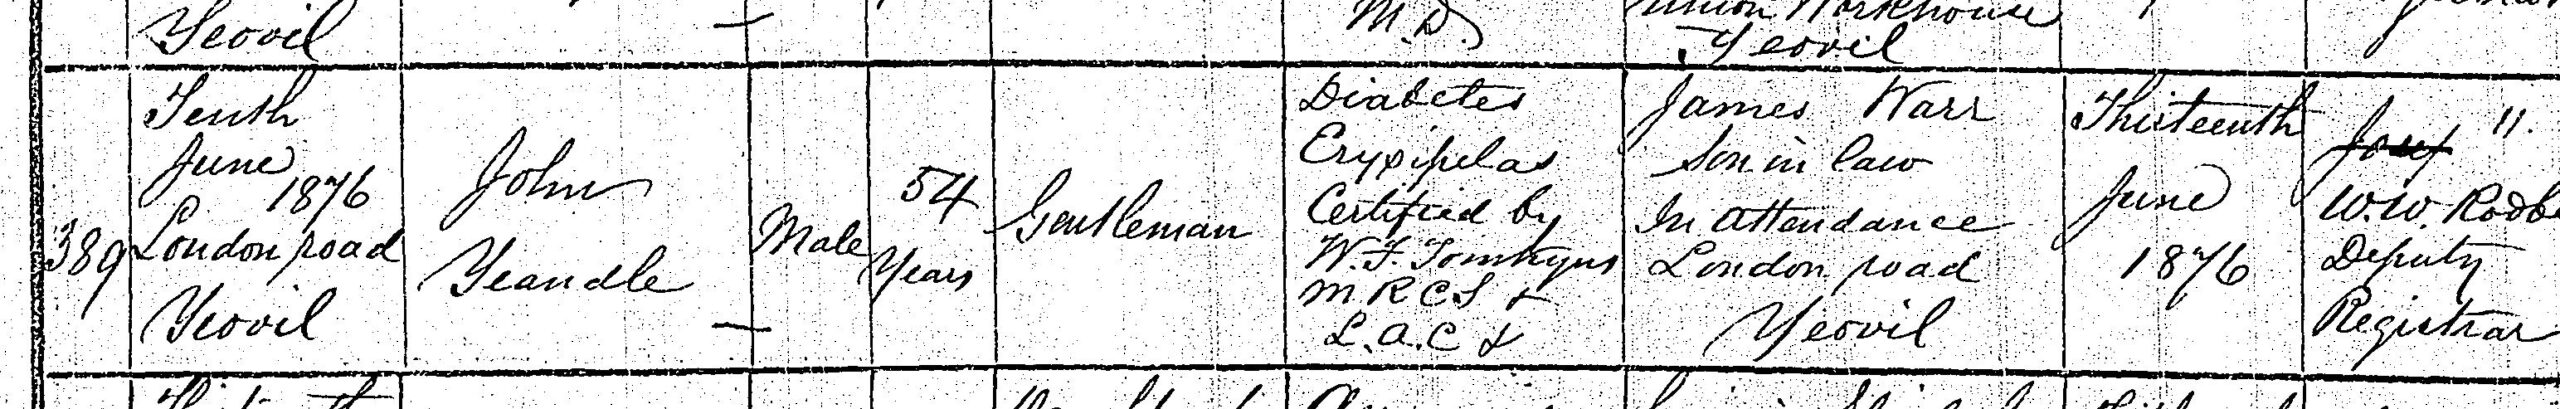 Yeovil
—
M.D.
Union Workhouse
Yeovil
389
Tenth
June
1876
London road
Yeovil
John
Yeandle
—
Male
54
Years
Gentleman
Diabetes
Erypipelas
Certified by
W. F. Tomkyns
M R C S &
L. A. C &
James Warr
Son in law
In attendance
London road
Yeovil
Thirteenth
June
1876
"
W. W. Rodb
Deputy
Registrar